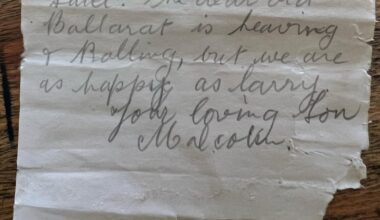 dear old
Ballarat is heaving
& Rolling, but we are
as happy as larry
Your loving Son
Malcolm.